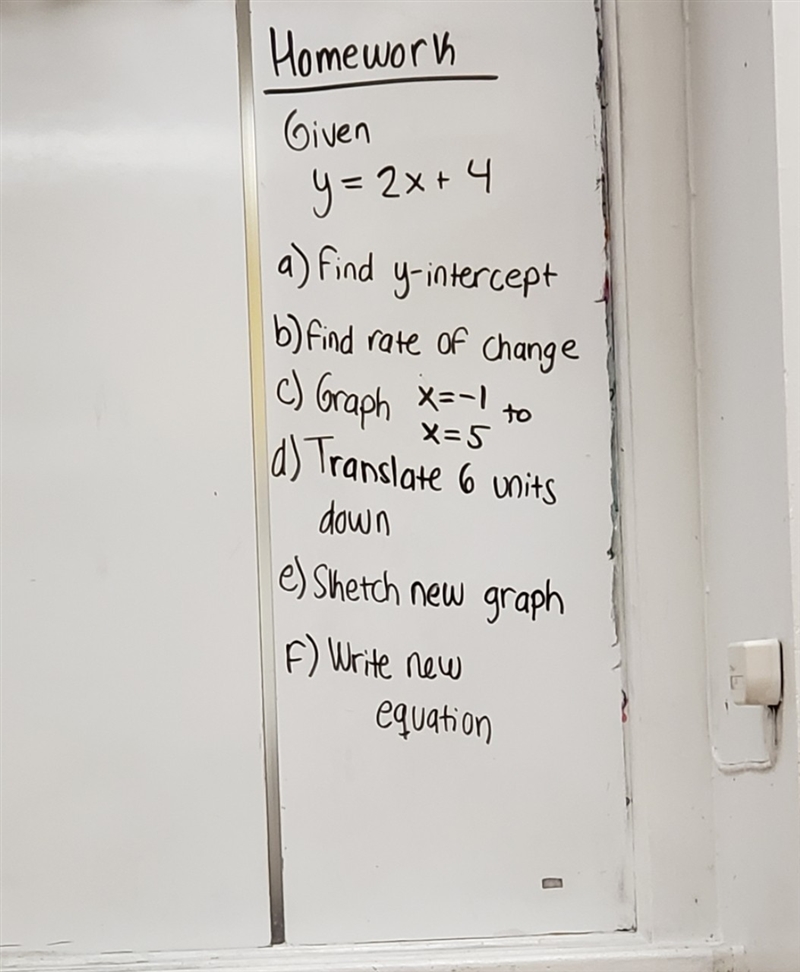 Homework
Given
y = 2x + 4
a) Find y-intercept
b) Find rate of change
c) Graph x = -1 to
x = 5
d) Translate 6 units
down
e) Sketch new graph
F) Write new
equation